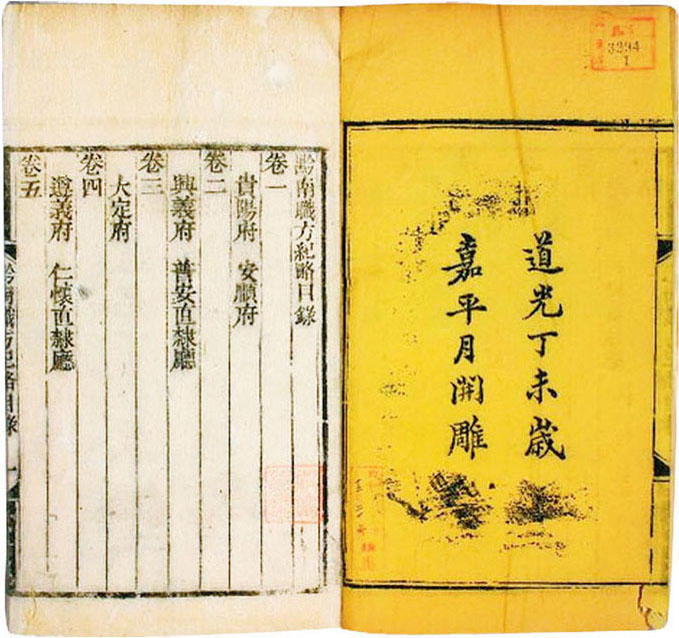 道光丁未歲
嘉平月開雕
3294
1
黔南職方紀略目錄
卷一
貴陽府 安順府
卷二
興義府 普安直隸廳
卷三
大定府
卷四
遵義府 仁懷直隸廳
卷五
黔南職方紀略目錄